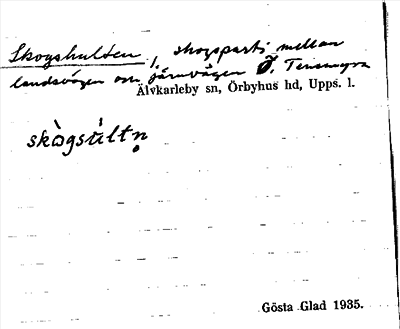 Skogshulten, skogsparti mellan
landsvägen och järnvägen Ö. Tensmyra
Älvkarleby sn, Örbyhus hd, Upps. l.
skògsùltn̥
Gösta Glad 1935.